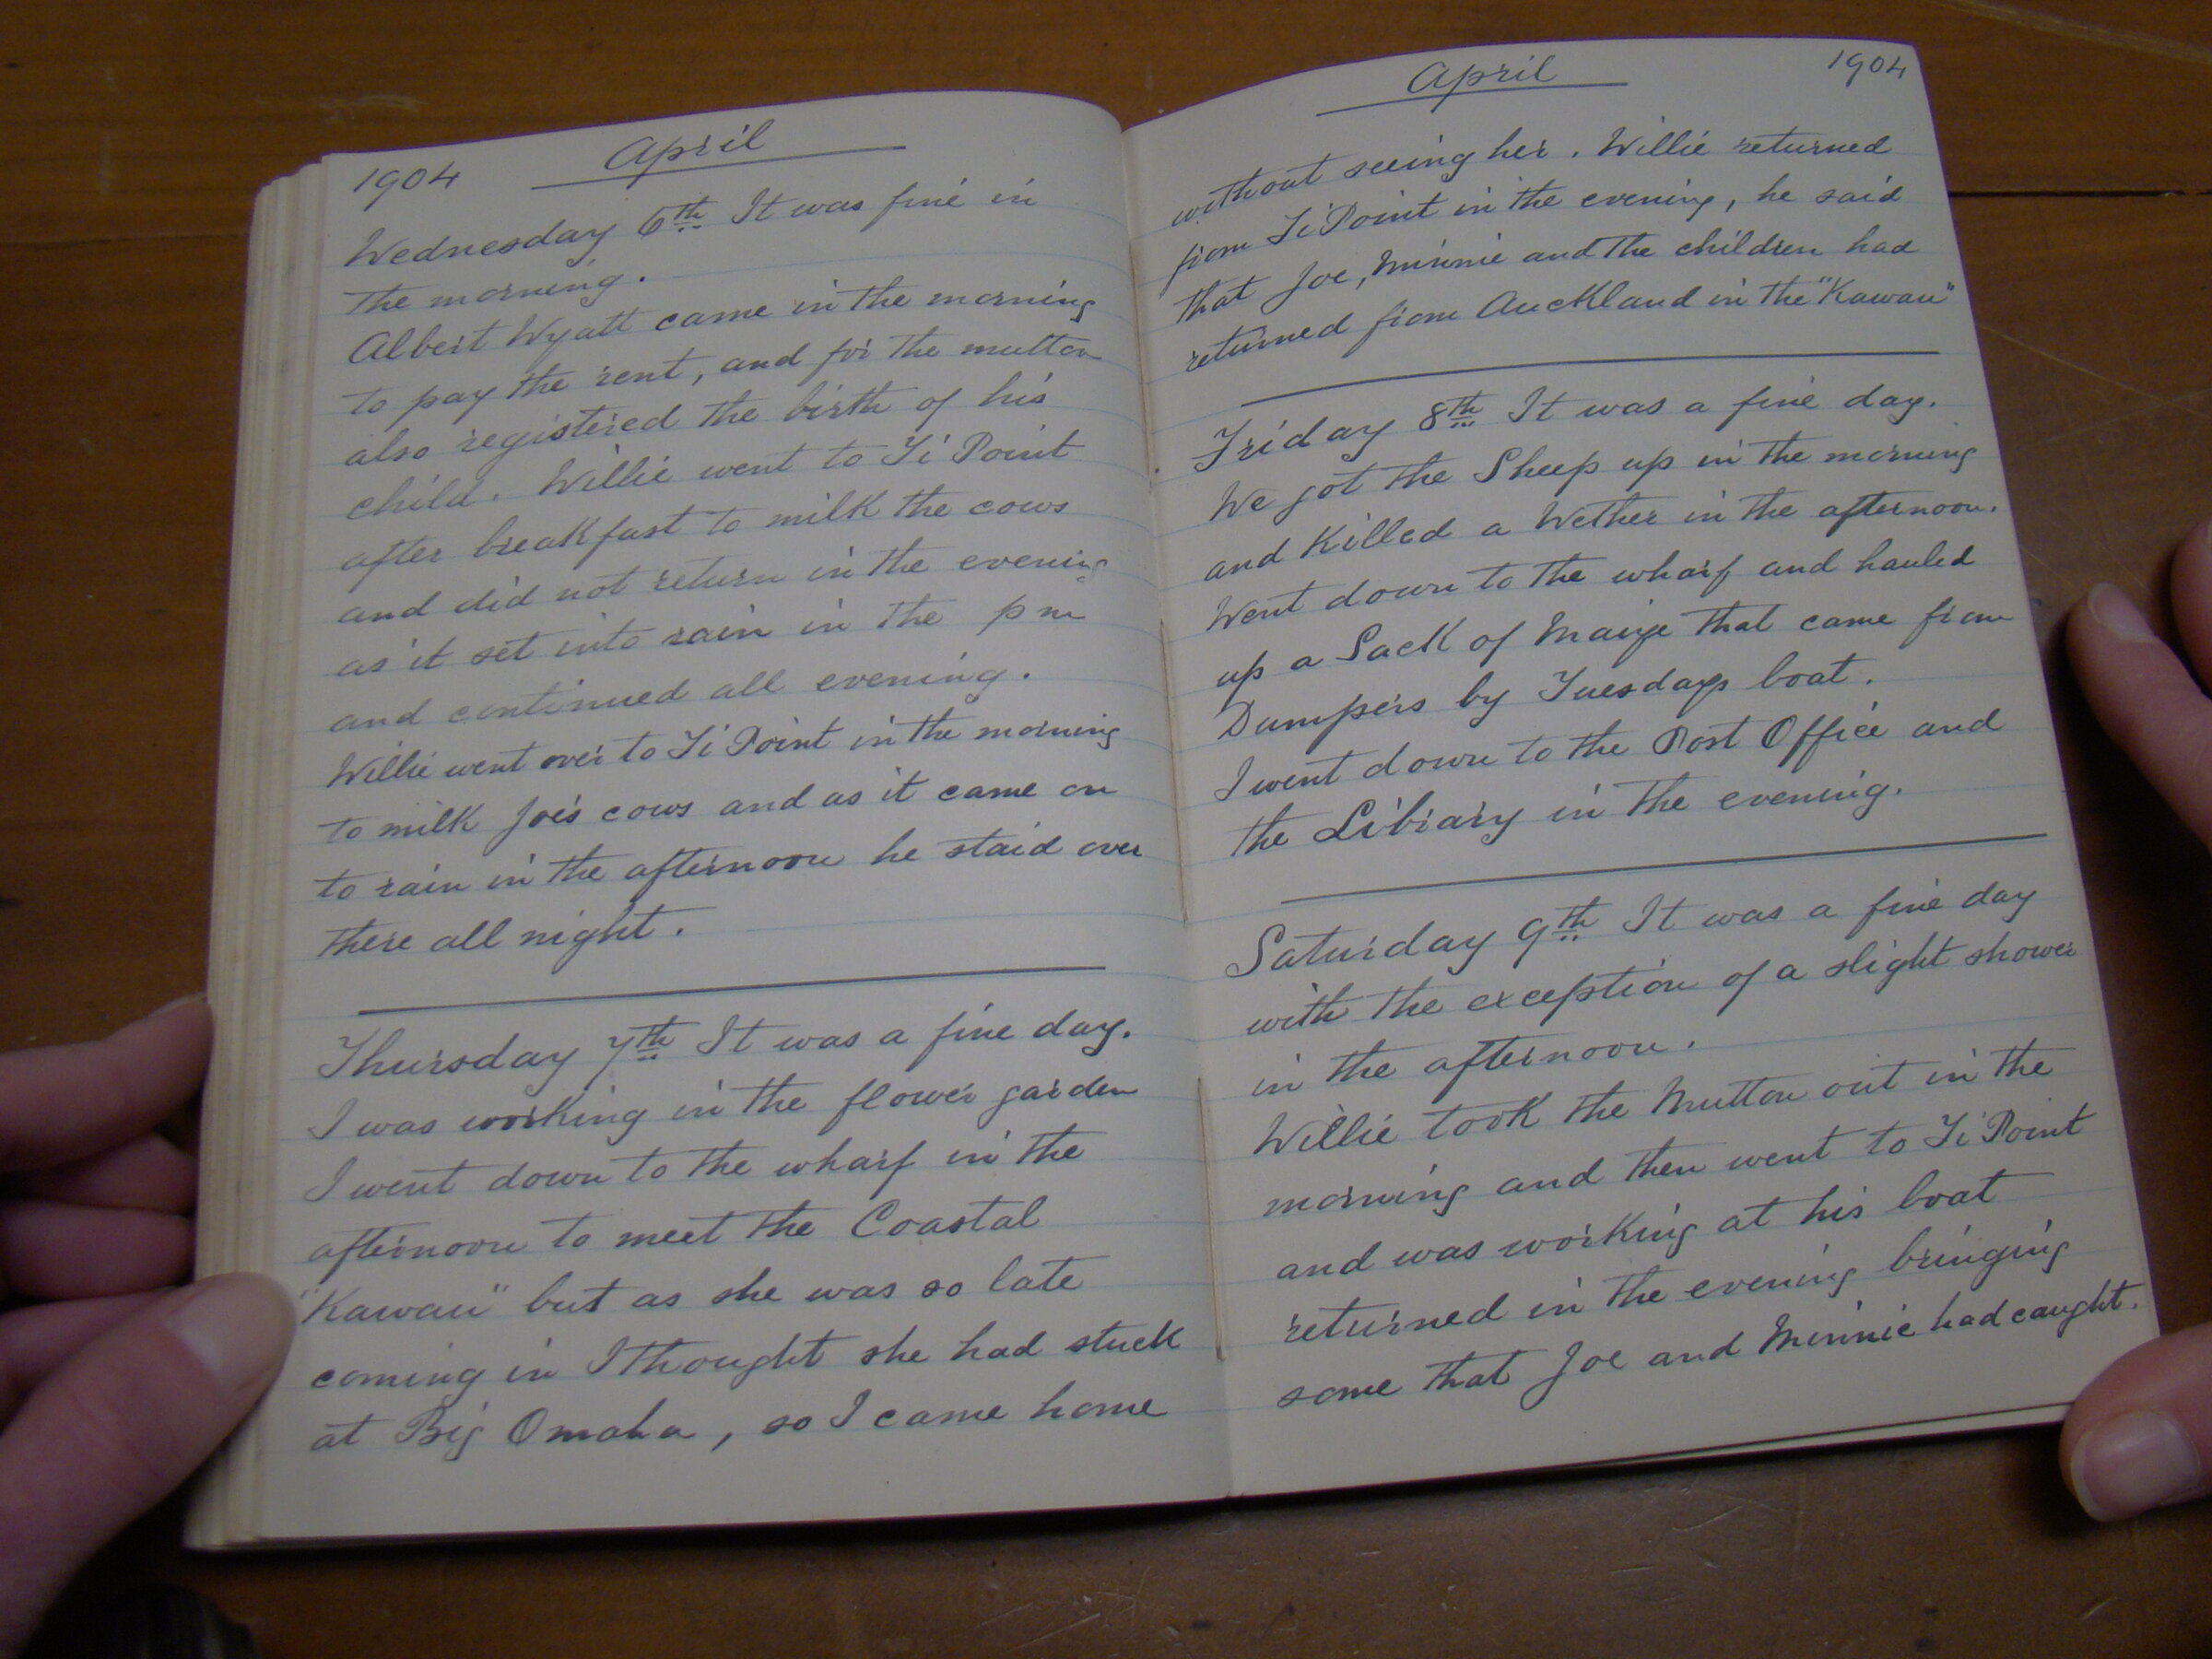 1904 April
Wednesday 6th It was fine in
the morning.
Albert Wyatt came in the morning
to pay the rent, and for the mutton
also registered the birth of his
child. Willie went to Ti Point
after breakfast to milk the cows
and did not return in the evening
as it set into rain in the pm
and continued all evening.
Willie went over to Ti Point in the morning
to milk Joe's cows and as it came on
to rain in the afternoon he staid over
there all night.
Thursday 7th It was a fine day.
I was working in the flower garden
I went down to the wharf in the
afternoon to meet the Coastal
"Kawau" but as she was so late
coming in I thought she had stuck
at Big Omaha, so I came home
April 1904
without seeing her. Willie returned
from Ti Point in the evening, he said
that Joe, Minnie and the children had
returned from Auckland in the "Kawau"
Friday 8th It was a fine day.
We got the Sheep up in the morning
and Killed a Wether in the afternoon.
Went down to the wharf and hauled
up a Sack of Maize that came from
Dumpers by Tuesdays boat.
I went down to the Post Office and
the Library in the evening.
Saturday 9th It was a fine day
with the exception of a slight shower
in the afternoon.
Willie took the Mutton out in the
morning and then went to Ti Point
and was working at his boat
returned in the evening bringing
some that Joe and Minnie had caught.